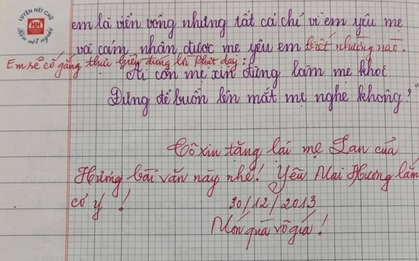 LUYỆN NÉT CHỮ
RÈN NẾT NGƯỜI
em là viển vông nhưng tất cả chỉ vì em yêu mẹ
và cảm nhận được mẹ yêu em biết nhường nào.
Em sẽ cố gắng thực hiện đúng lời Phật dạy:
"Ai còn mẹ xin đừng làm mẹ khóc
Đừng để buồn lên mắt mẹ nghe không,"
Cô xin tặng lại mẹ Lan của
Hương bài văn này nhé! Yêu Mai Hương lắm
cơ ý !
30/12/2013
Món quà vô giá!